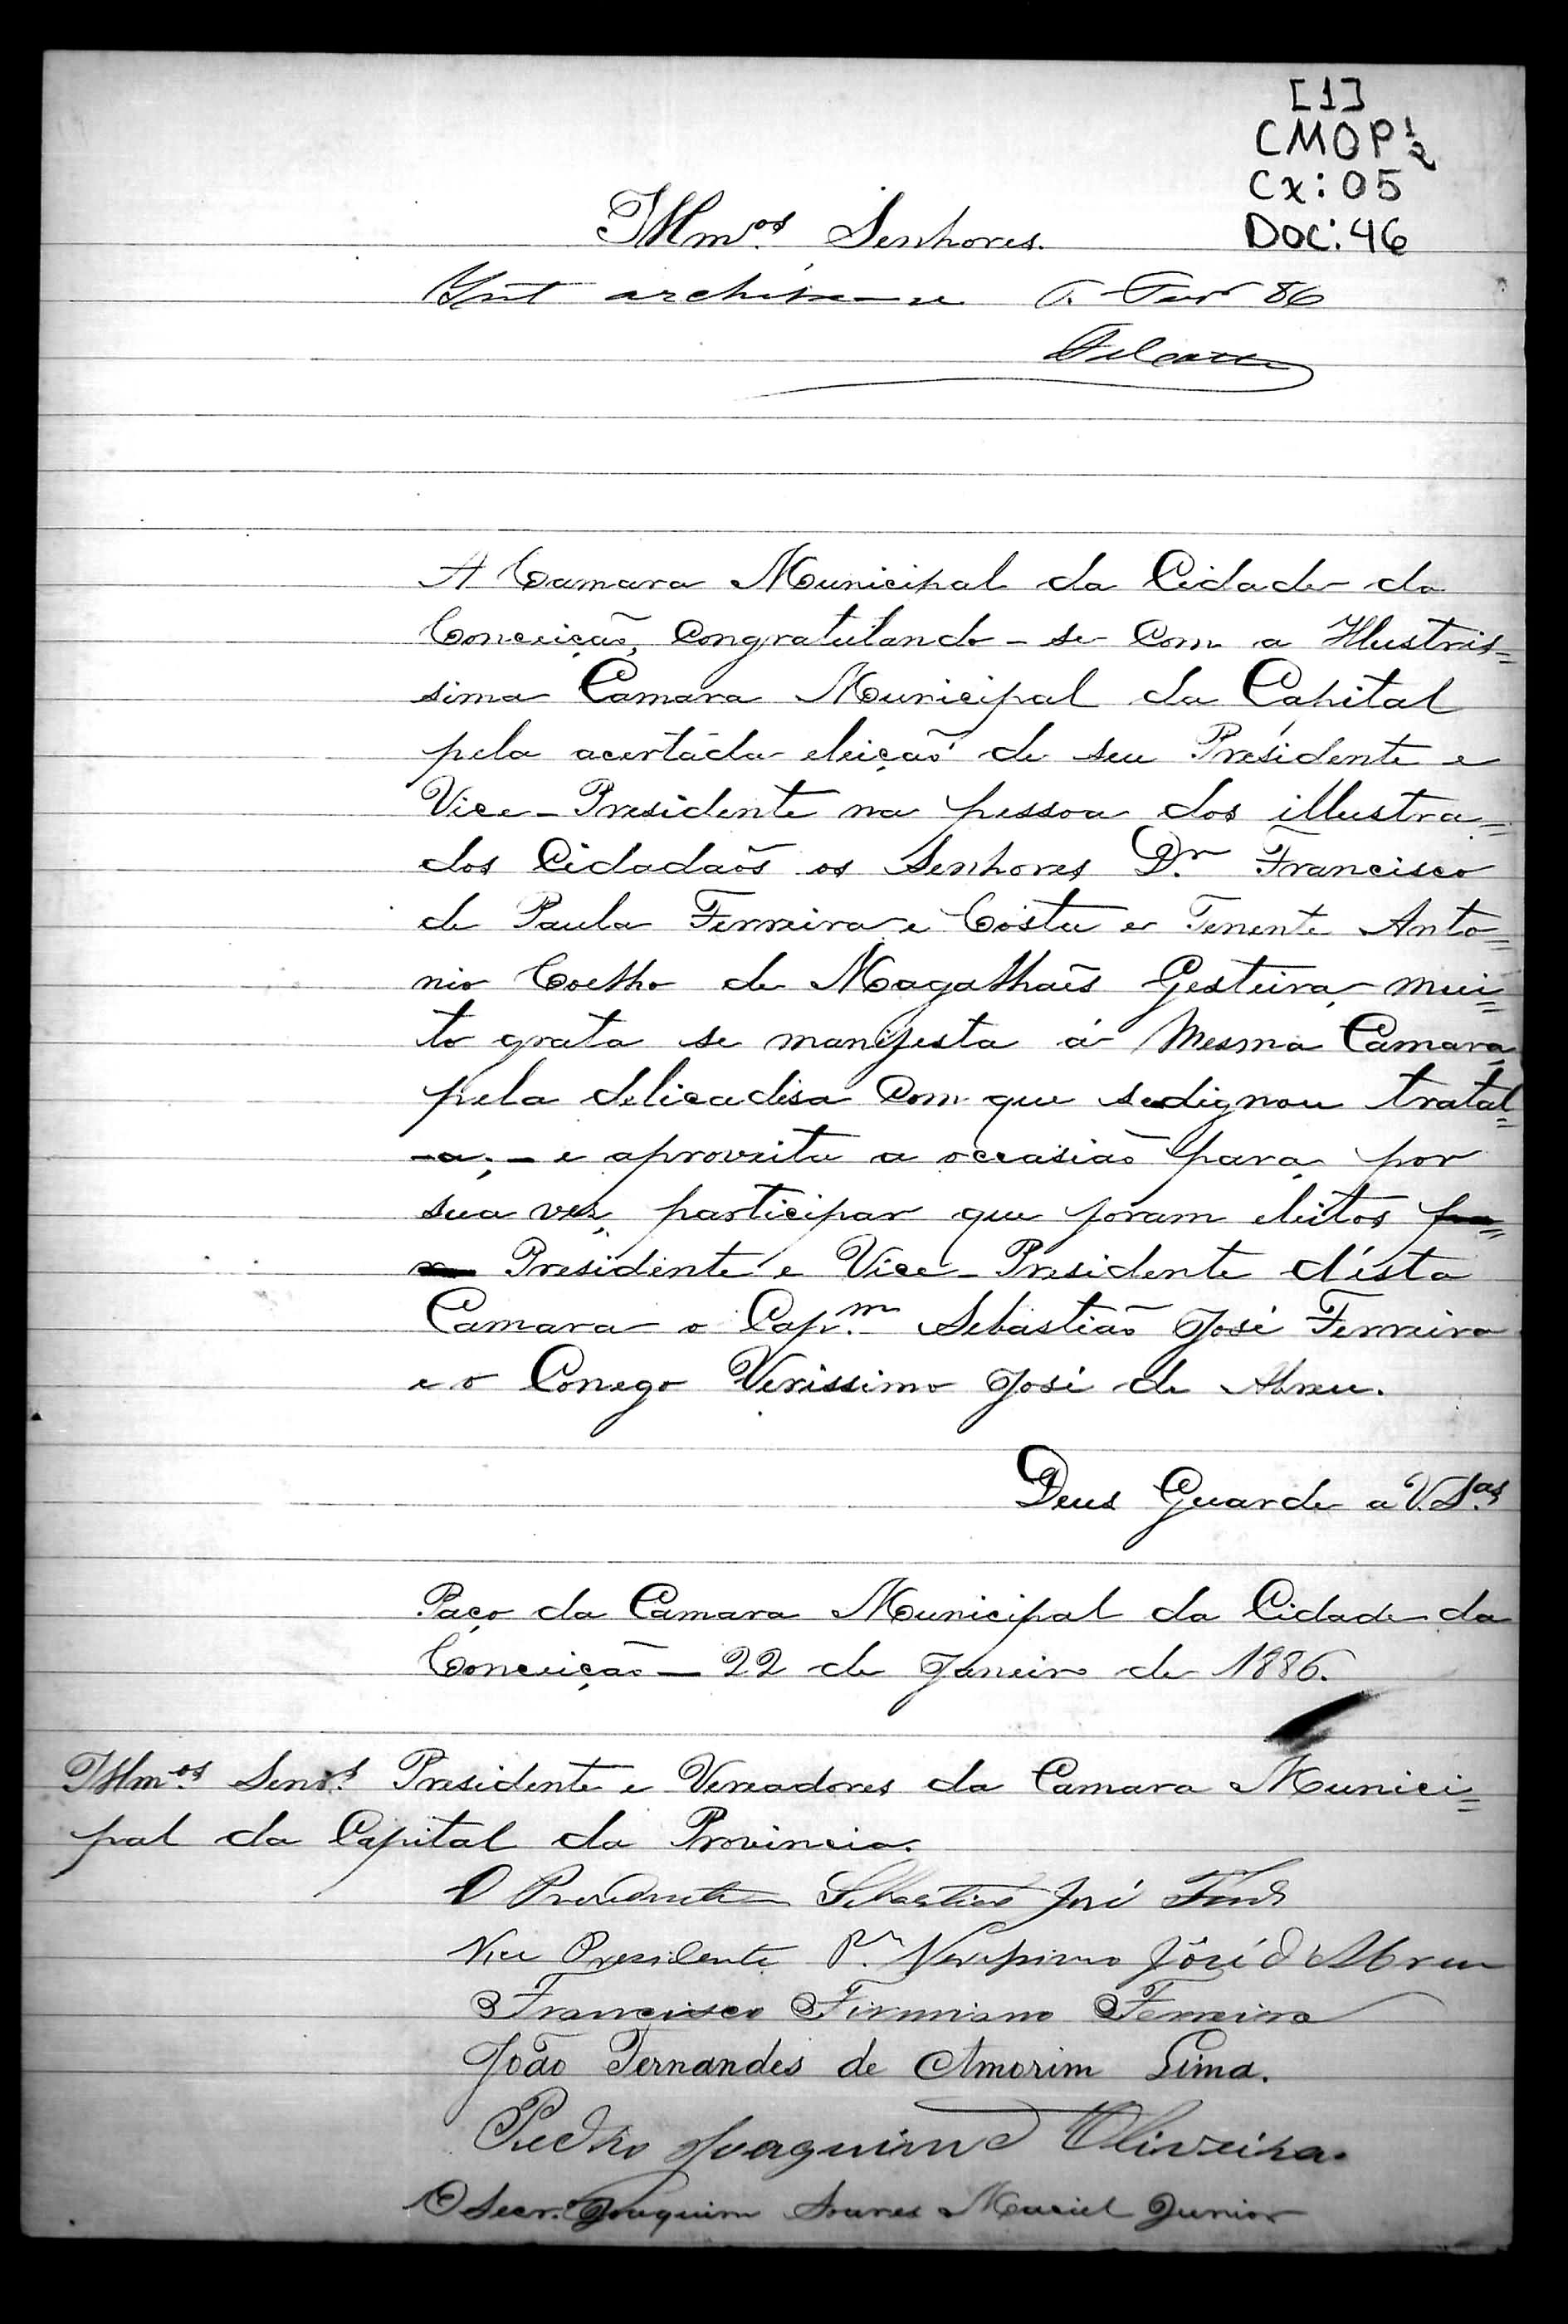 [1]
CMOP 1/2
Cx: 05
Doc: 46
Illmos. Senhores.
archive-se 86
A Camara Municipal da Cidade da
Conceição, Congratulando-se Com a Illustris=
sima Camara Municipal da Capital
pela acertada eleição de seu Presidente e
Vice-Presidente na pessoa dos illustra=
dos Cidadãos os Senhores Dr. Francisco
de Paula Ferreira e Costa e Tenente Anto=
nio Coelho de Magalhães Gesteira, mui=
to grata se manifesta á Mesma Camara,
pela delicadisa Com que sedignou tratal=
-a; - e aproveita a occasião para por
sua vez, participar que foram eleitos
Presidente e Vice-Presidente d'ésta
Camara o Capm. Sebastião José Ferreira
e o Conego Verissimo José de Abreu.
Deus Guarde a V. Sas.
Paço da Camara Municipal da Cidade da
Conceição - 22 de Janeiro de 1886.
Illmos. Senrs. Presidente e Vereadores da Camara Munici=
pal da Capital da Provincia.
O Presidente Sebastião José Ferra
Vice Presidente Pe. Verissimo José d'Abreu
Francisco Firmiano Ferreira
João Fernandes de Amorim Lima.
Pedro Joaquim d Oliveira.
O Secr.o Joaquim Soares Maciel Junior